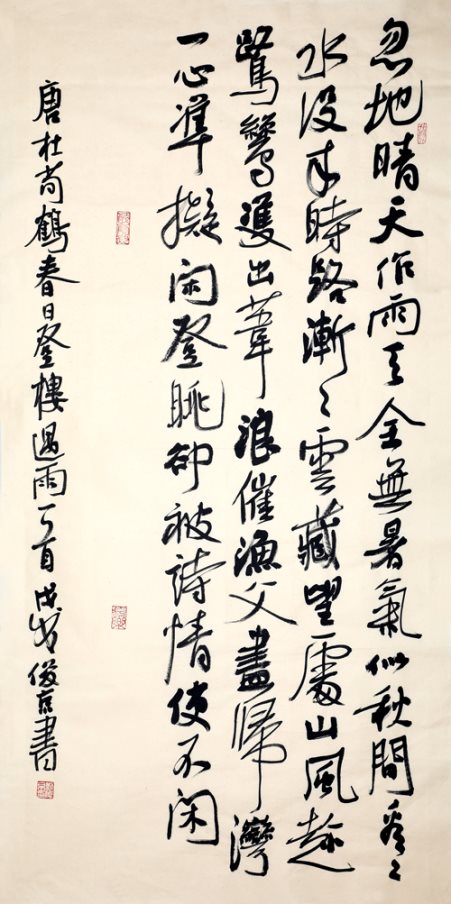 忽地晴天作雨天全無暑氣似秋間看〻
水没来時路漸〻雲藏望處山風趁
鷺鷥雙出葦浪催漁父盡歸灣
一心準擬闲登眺却被詩情使不闲
唐杜荀鶴春日登樓遇雨一首戊戌俊京書